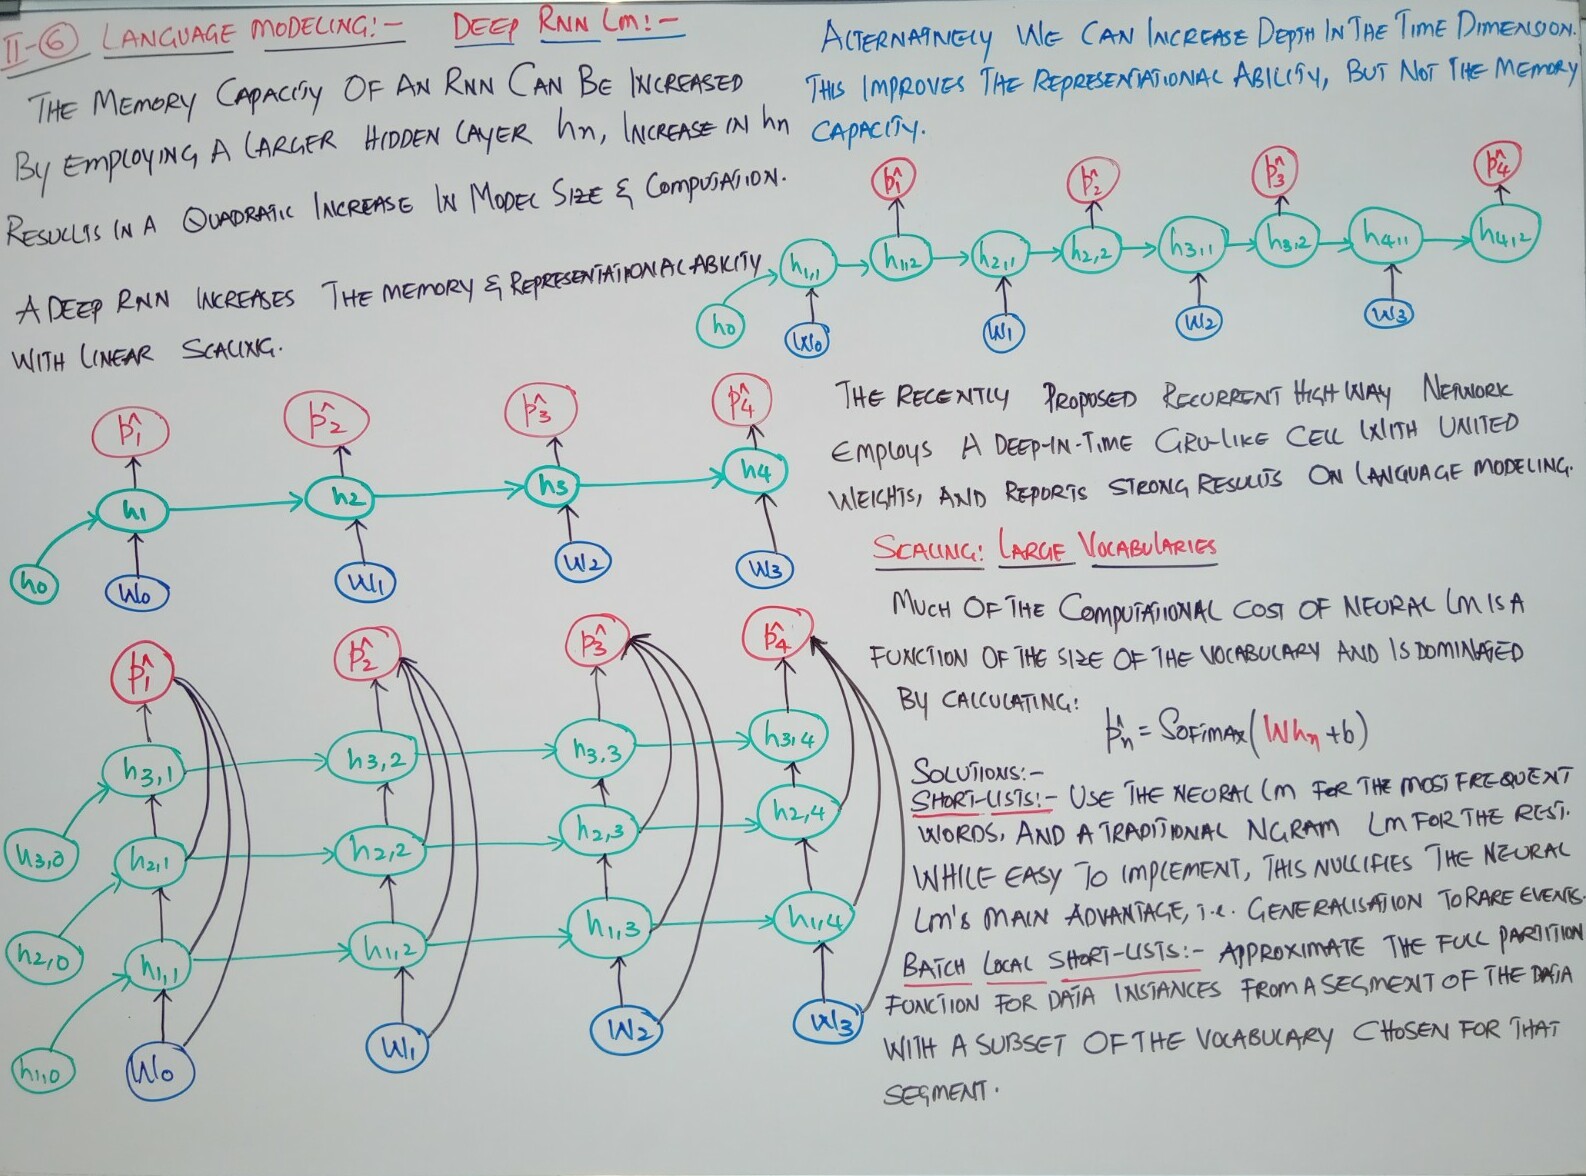 II-6 LANGUAGE MODELING:- DEEP RNN LM:-
THE MEMORY CAPACITY OF AN RNN CAN BE INCREASED
BY EMPLOYING A LARGER HIDDEN LAYER hn, INCREASE IN hn
RESULTS IN A QUADRATIC INCREASE IN MODEL SIZE & COMPUTATION.
A DEEP RNN INCREASES THE MEMORY & REPRESENTATIONAL ABILITY
WITH LINEAR SCALING.
p̂1 p̂2 p̂3 p̂4
h1 h2 h3 h4
h0 W0 W1 W2 W3
p̂1 p̂2 p̂3 p̂4
h3,1 h3,2 h3,3 h3,4
h3,0 h2,1 h2,2 h2,3 h2,4
h2,0 h1,1 h1,2 h1,3 h1,4
h1,0 W0 W1 W2 W3
ALTERNATIVELY WE CAN INCREASE DEPTH IN THE TIME DIMENSION.
THIS IMPROVES THE REPRESENTATIONAL ABILITY, BUT NOT THE MEMORY
CAPACITY.
p̂1 p̂2 p̂3 p̂4
h1,1 h1,2 h2,1 h2,2 h3,1 h3,2 h4,1 h4,2
h0 W0 W1 W2 W3
THE RECENTLY PROPOSED RECURRENT HIGHWAY NETWORK
EMPLOYS A DEEP-IN-TIME GRU-LIKE CELL WITH UNITED
WEIGHTS, AND REPORTS STRONG RESULTS ON LANGUAGE MODELING.
SCALING: LARGE VOCABULARIES
MUCH OF THE COMPUTATIONAL COST OF NEURAL LM IS A
FUNCTION OF THE SIZE OF THE VOCABULARY AND IS DOMINATED
BY CALCULATING:
p̂n = SOFTMAX(Whn + b)
SOLUTIONS:-
SHORT-LISTS:- USE THE NEURAL LM FOR THE MOST FREQUENT
WORDS, AND A TRADITIONAL NGRAM LM FOR THE REST.
WHILE EASY TO IMPLEMENT, THIS NULLIFIES THE NEURAL
LM'S MAIN ADVANTAGE, i.e. GENERALISATION TO RARE EVENTS.
BATCH LOCAL SHORT-LISTS:- APPROXIMATE THE FULL PARTITION
FUNCTION FOR DATA INSTANCES FROM A SEGMENT OF THE DATA
WITH A SUBSET OF THE VOCABULARY CHOSEN FOR THAT
SEGMENT.